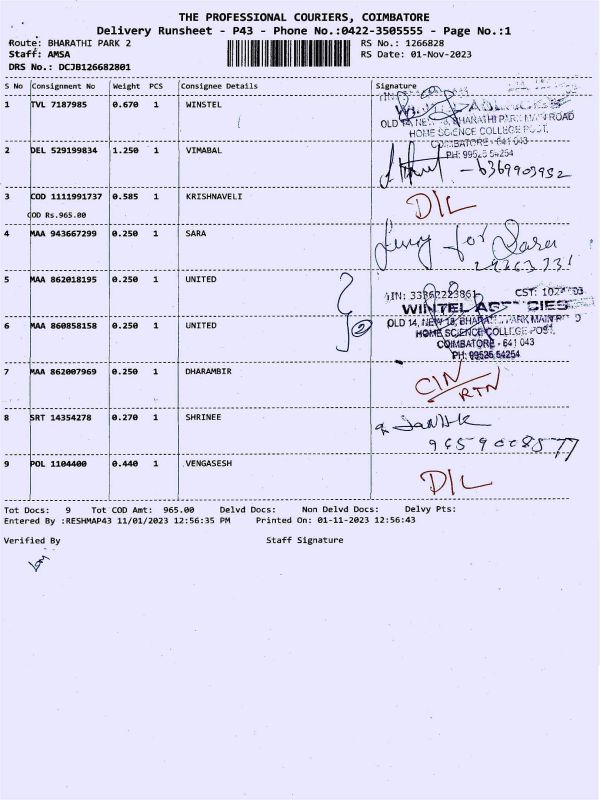 THE PROFESSIONAL COURIERS, COIMBATORE
Delivery Runsheet - P43 - Phone No.:0422-3505555 - Page No.:1
Route: BHARATHI PARK 2 RS No.: 1266828
Staff: AMSA RS Date: 01-Nov-2023
DRS No.: DCJB126682801
S No Consignment No Weight PCS Consignee Details Signature
1 TVL 7187985 0.670 1 WINSTEL
OLD 14, NEW 18, BHARATHI PARK MAIN ROAD
HOME SCIENCE COLLEGE POST,
COIMBATORE - 641 043
2 DEL 529199834 1.250 1 VIMABAL PH: 99526 54254
- 6369903952
3 COD 1111991737 0.585 1 KRISHNAVELI D/L
COD Rs.965.00
4 MAA 943667299 0.250 1 SARA for Sara
5 MAA 862018195 0.250 1 UNITED
WINTEL AGENCIES
2
6 MAA 860858158 0.250 1 UNITED OLD 14, NEW 18, BHARATHI PARK MAIN ROAD
HOME SCIENCE COLLEGE POST,
COIMBATORE - 641 043
PH: 99526 54254
7 MAA 862007969 0.250 1 DHARAMBIR CIN
RTN
8 SRT 14354278 0.270 1 SHRINEE
9 POL 1104400 0.440 1 VENGASESH D/L
Tot Docs: 9 Tot COD Amt: 965.00 Delvd Docs: Non Delvd Docs: Delvy Pts:
Entered By :RESHMAP43 11/01/2023 12:56:35 PM Printed On: 01-11-2023 12:56:43
Verified By Staff Signature